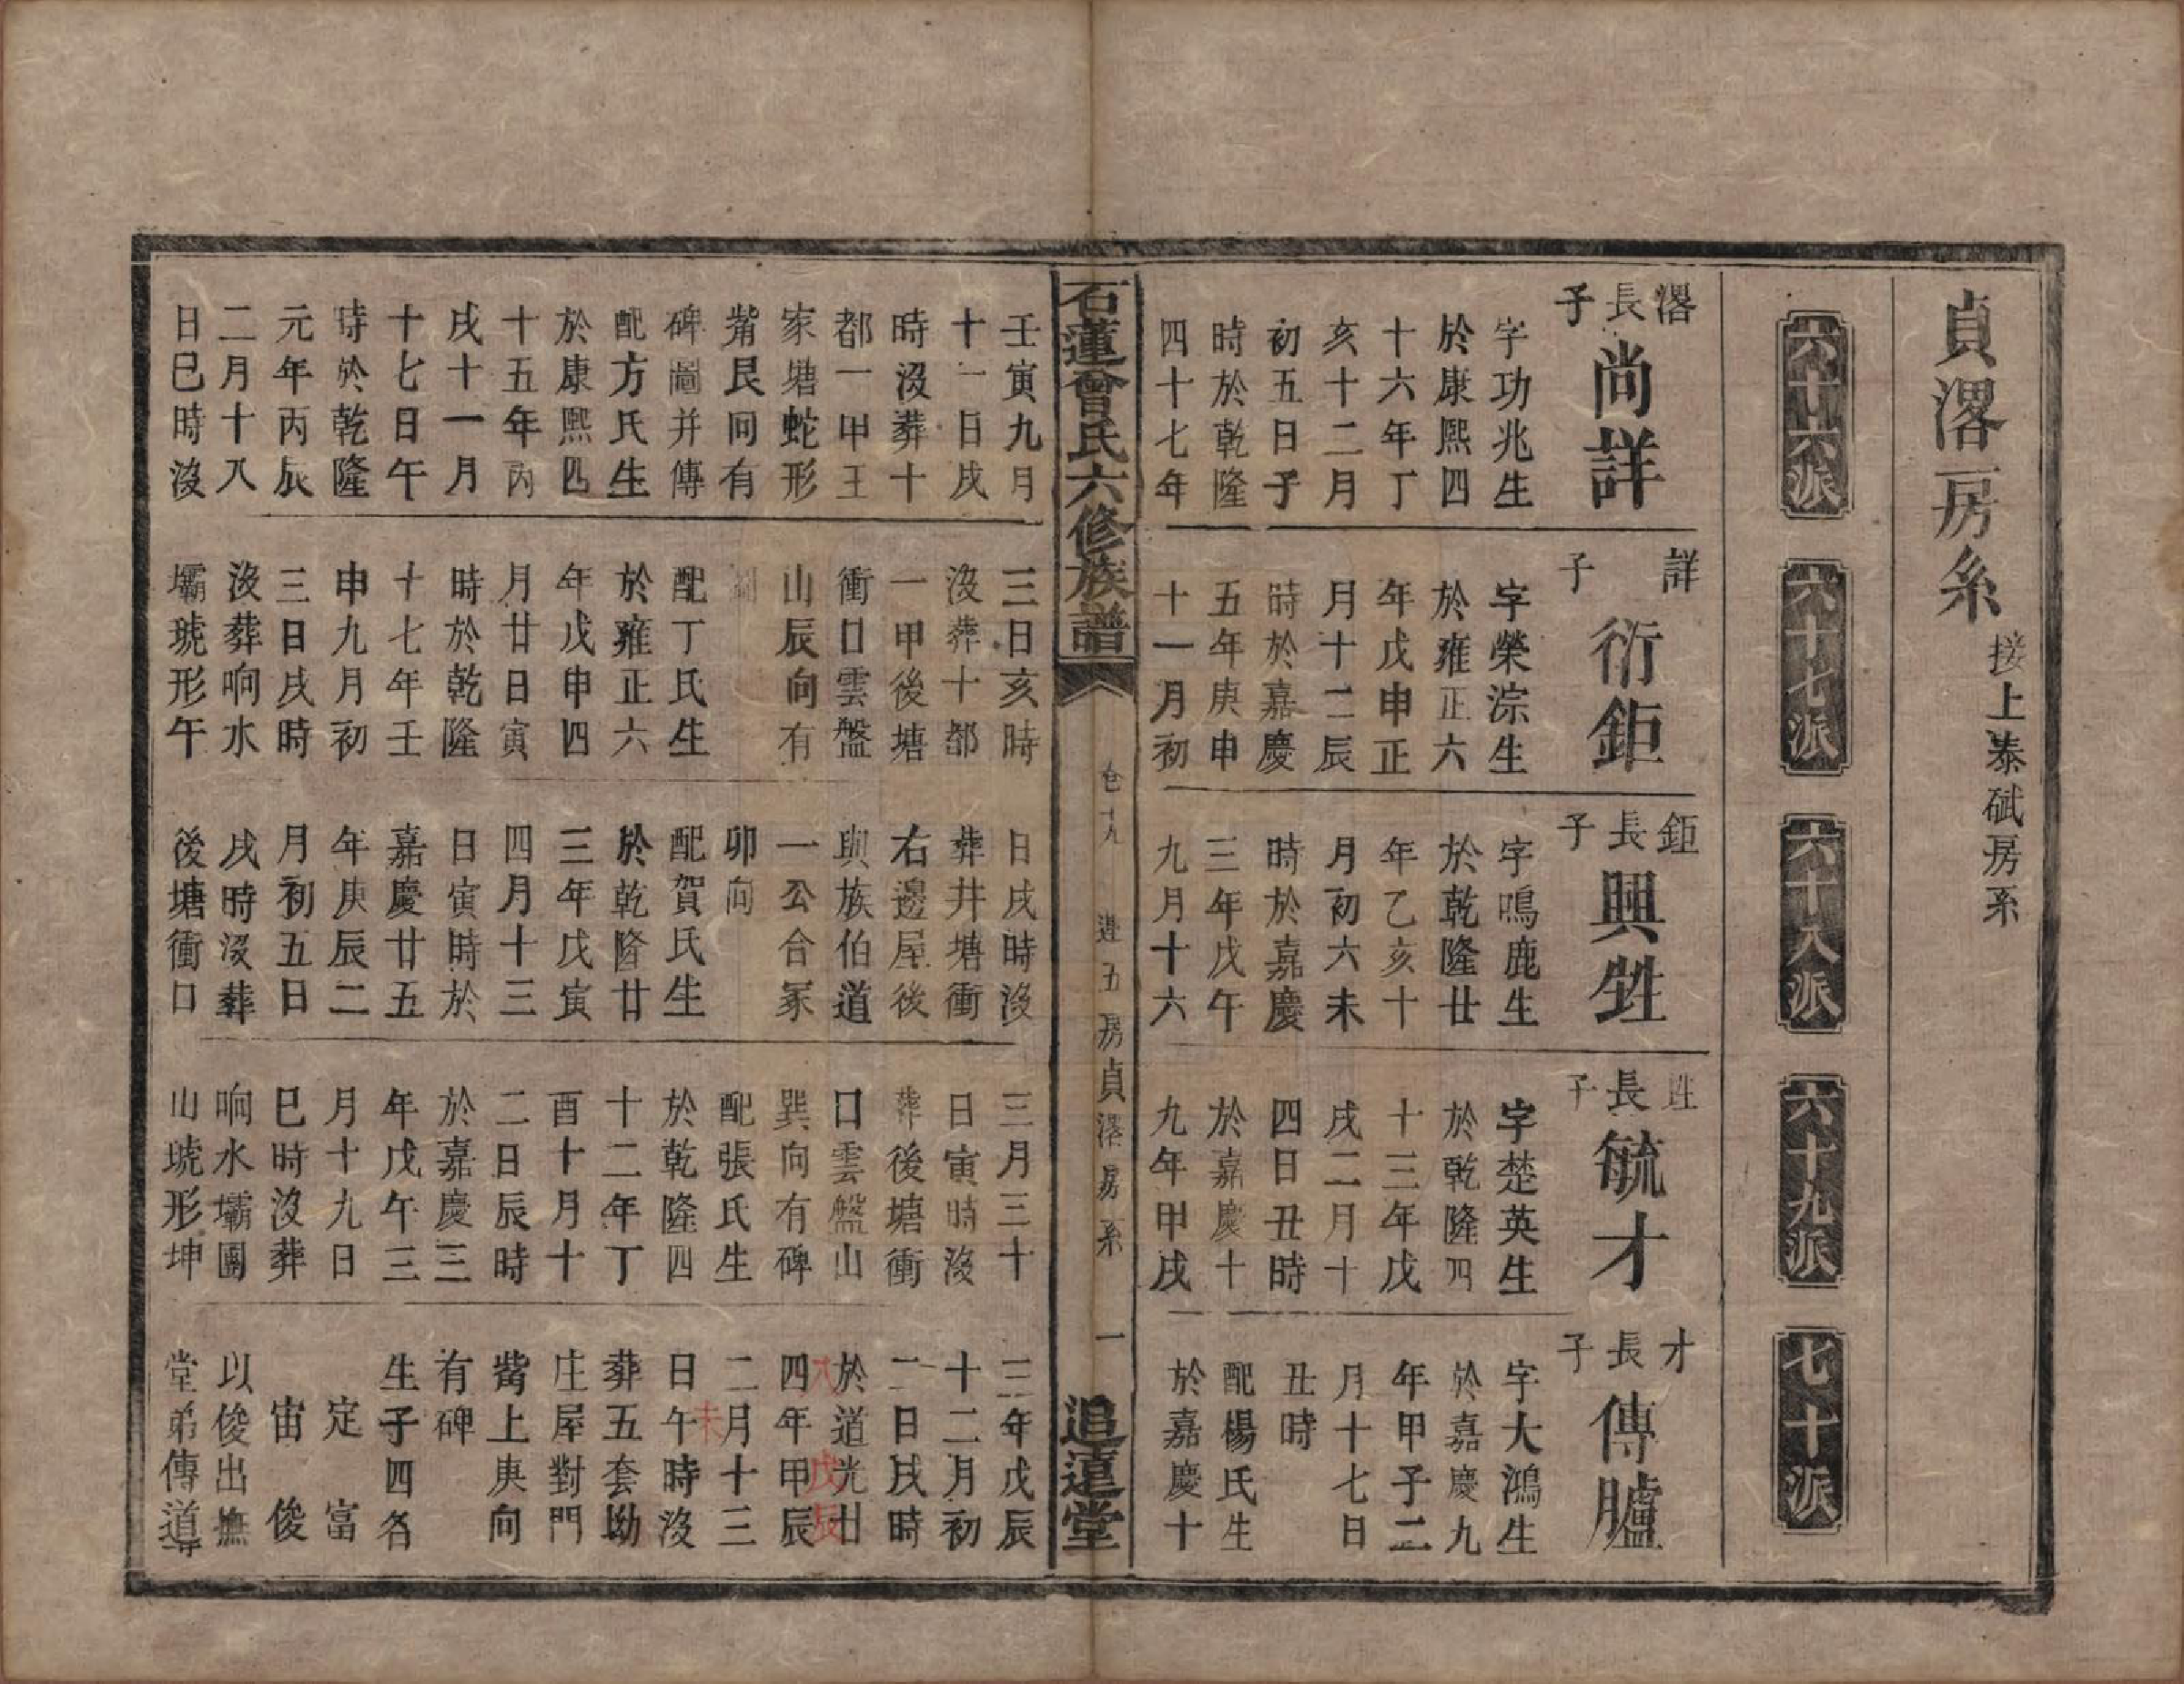 貞畧房系 接上泰砥房系
六十六派
六十七派
六十八派
六十九派
七十派
畧長子
尚詳
字功兆生
於康熙四
十六年丁
亥十二月
初五日子
時於乾隆
四十七年
詳子
衍鉅
字榮淙生
於雍正六
年戊申正
月十二辰
時於嘉慶
五年庚申
十一月初
鉅長子
興甡
字鳴鹿生
於乾隆廿
年乙亥十
月初六未
時於嘉慶
三年戊午
九月十六
甡長子
毓才
字楚英生
於乾隆四
十三年戊
戌二月十
四日丑時
於嘉慶十
九年甲戌
才長子
傳臚
字大鴻生
於嘉慶九
年甲子二
月十七日
丑時
配楊氏生
於嘉慶十
石蓮曾氏六修族譜
卷十九
五房貞畧房系
一
追遠堂
壬寅九月
十一日戌
時沒葬十
都一甲王
家塘蛇形
嘴艮向有
碑圖并傳
配方氏生
於康熙四
十五年丙
戌十一月
十七日午
時於乾隆
元年丙辰
二月十八
日巳時沒
三日亥時
沒葬十都
一甲後塘
衝口雲盤
山辰向有
配丁氏生
於雍正六
年戊申四
月廿日寅
時於乾隆
十七年壬
申九月初
三日戌時
沒葬响水
壩琥形午
日戌時沒
葬井塘衝
右邊屋後
與族伯道
一公合冢
卯向
配賀氏生
於乾隆廿
三年戊寅
四月十三
日寅時於
嘉慶廿五
年庚辰二
月初五日
戌時沒葬
後塘衝口
三月三十
日寅時沒
葬後塘衝
口雲盤山
巽向有碑
配張氏生
於乾隆四
十二年丁
酉十月十
二日辰時
於嘉慶三
年戊午三
月十九日
巳時沒葬
响水壩圍
山琥形坤
三年戊辰
十二月初
二日戌時
於道光廿
四年甲辰
二月十三
日午時沒
葬五套坳
庄屋對門
嘴上庚向
有碑
生子四名
定 富
宙 俊
以俊出撫
堂弟傳道
八 戊辰
未